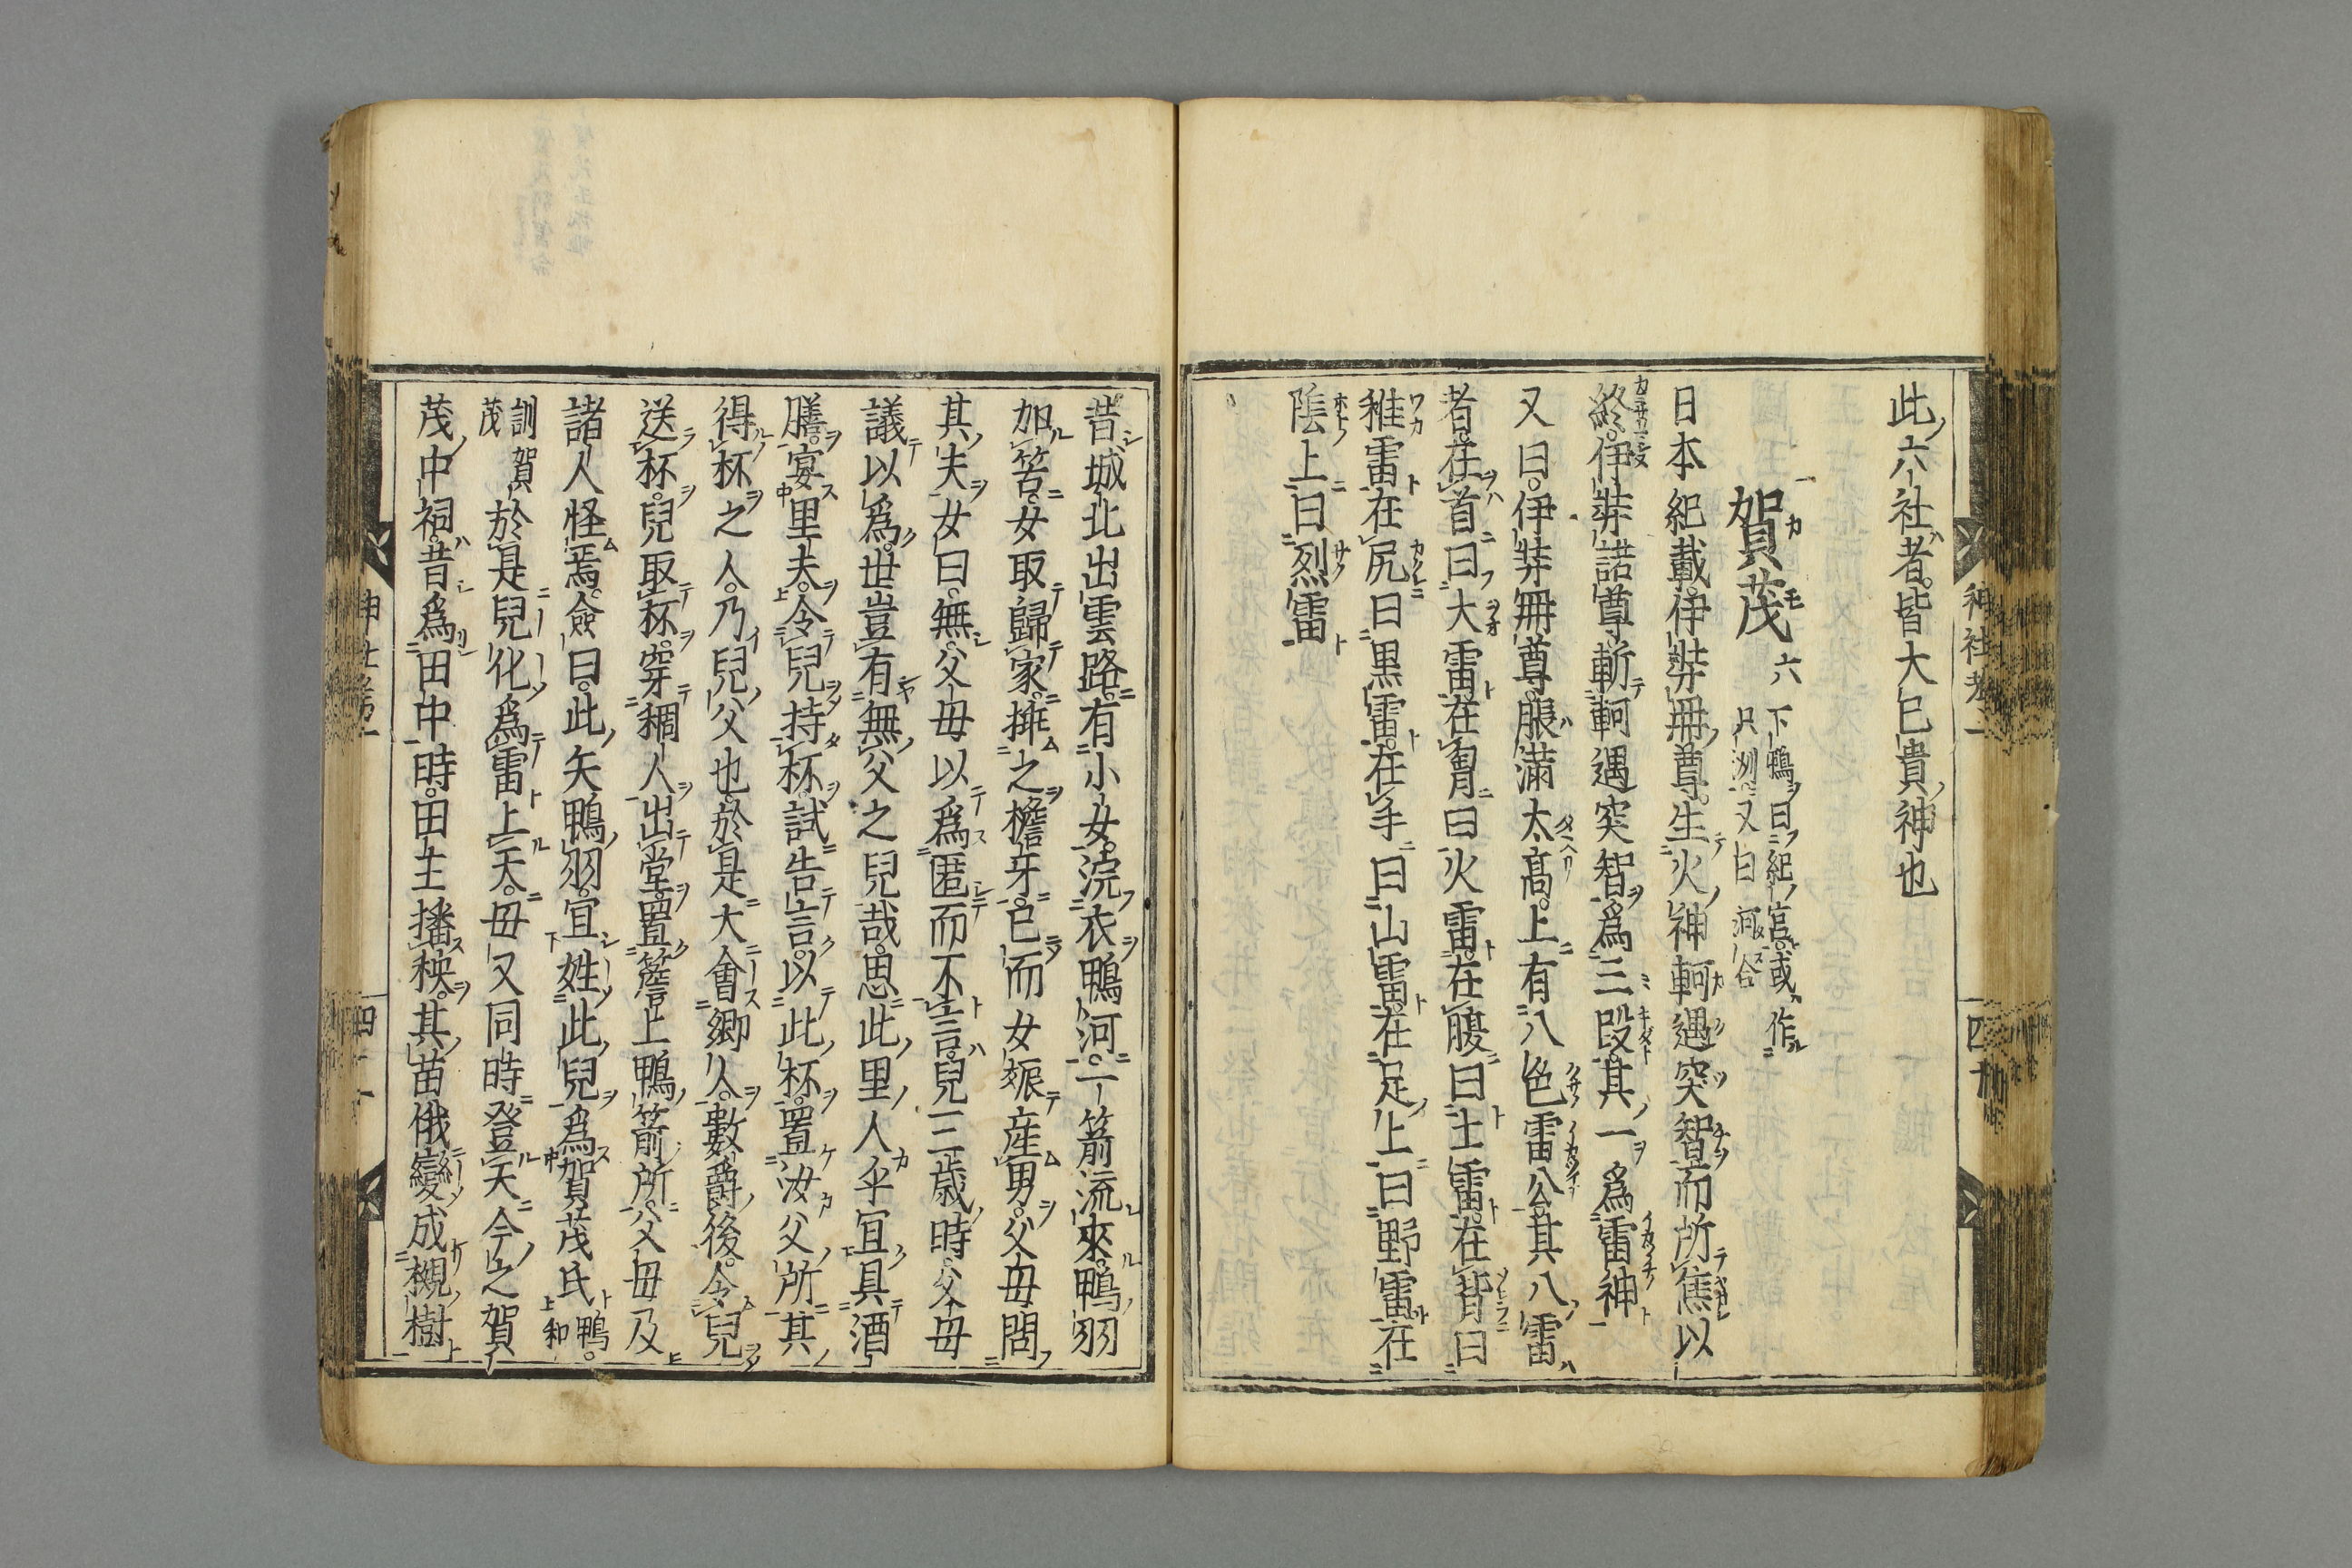 此六社者。皆大巳貴神也
賀茂六 下鴨曰糺宮。或作
只洲。又曰河合
日本紀載。伊弉冊尊。生火神軻遇突智而所焦以
終。伊弉諾尊斬軻遇突智爲三段。其一爲雷神
又曰。伊弉冊尊。脹滿太高。上有八色雷公其八雷
者。在首曰大雷。在胷曰火雷。在腹曰土雷。在背曰
稚雷在尻曰黒雷。在手曰山雷。在足上曰野雷在
陰上曰烈雷
神社考一
四十
昔城北出雲路。有小女。浣衣鴨河。一箭流來。鴨羽
加筈。女取歸家。挿之檐牙。已而女娠産男。父母問
其夫女曰。無。父母以爲匿而不言。兒三歳時。父母
議以爲。世豈有無父之兒哉。思此里人乎宜具酒
膳。宴里夫。令兒持杯。試告言。以此杯。置汝父所其
得杯之人。乃兒父也。於是大會鄕人。數爵後。令兒
送杯。兒取杯。穿稠人出堂。置簷上鴨箭所。父母及
諸人怪焉。僉曰。此矢鴨羽。宜姓此兒爲賀茂氏 鴨。和
訓賀
茂 於是兒化爲雷上天。毋又同時登天今之賀
茂中祠。昔爲田中時。田主播秧。其苗俄變成槻樹